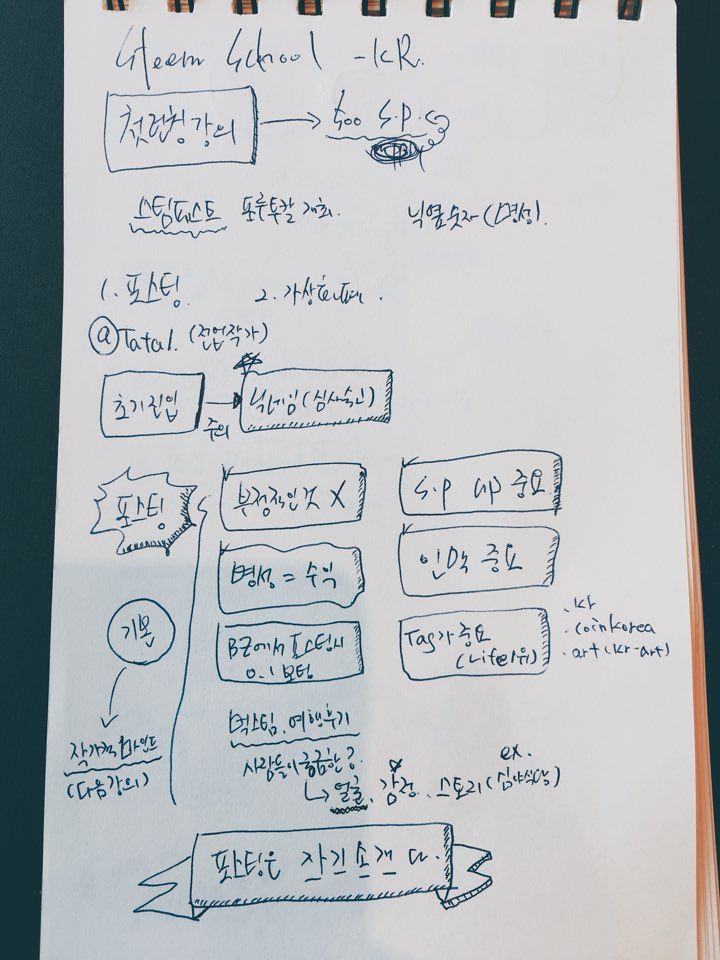 Steem School -KR.
첫런칭강의 → 500 S.P.
스팀페스트 포루투칼 개최. 닉옆숫자(명성).
1. 포스팅. 2. 가상화폐.
@Tata1. (전업작가)
초기진입 → 닉네임(심사숙고)
주의
포스팅
부정적인것 X
S.P up 중요.
명성 = 수익
인맥 중요
기본
BZ에서 포스팅시
0.1 보팅
Tag가 중요
(Life위)
.kr
.coinkorea
.art(kr-art)
작가적 마인드
(다음강의)
먹스팀. 여행후기
사람들이 궁금한 것?
ex.
→ 얼굴. 감정. 스토리(심야식당)
포스팅은 자기소개 다.